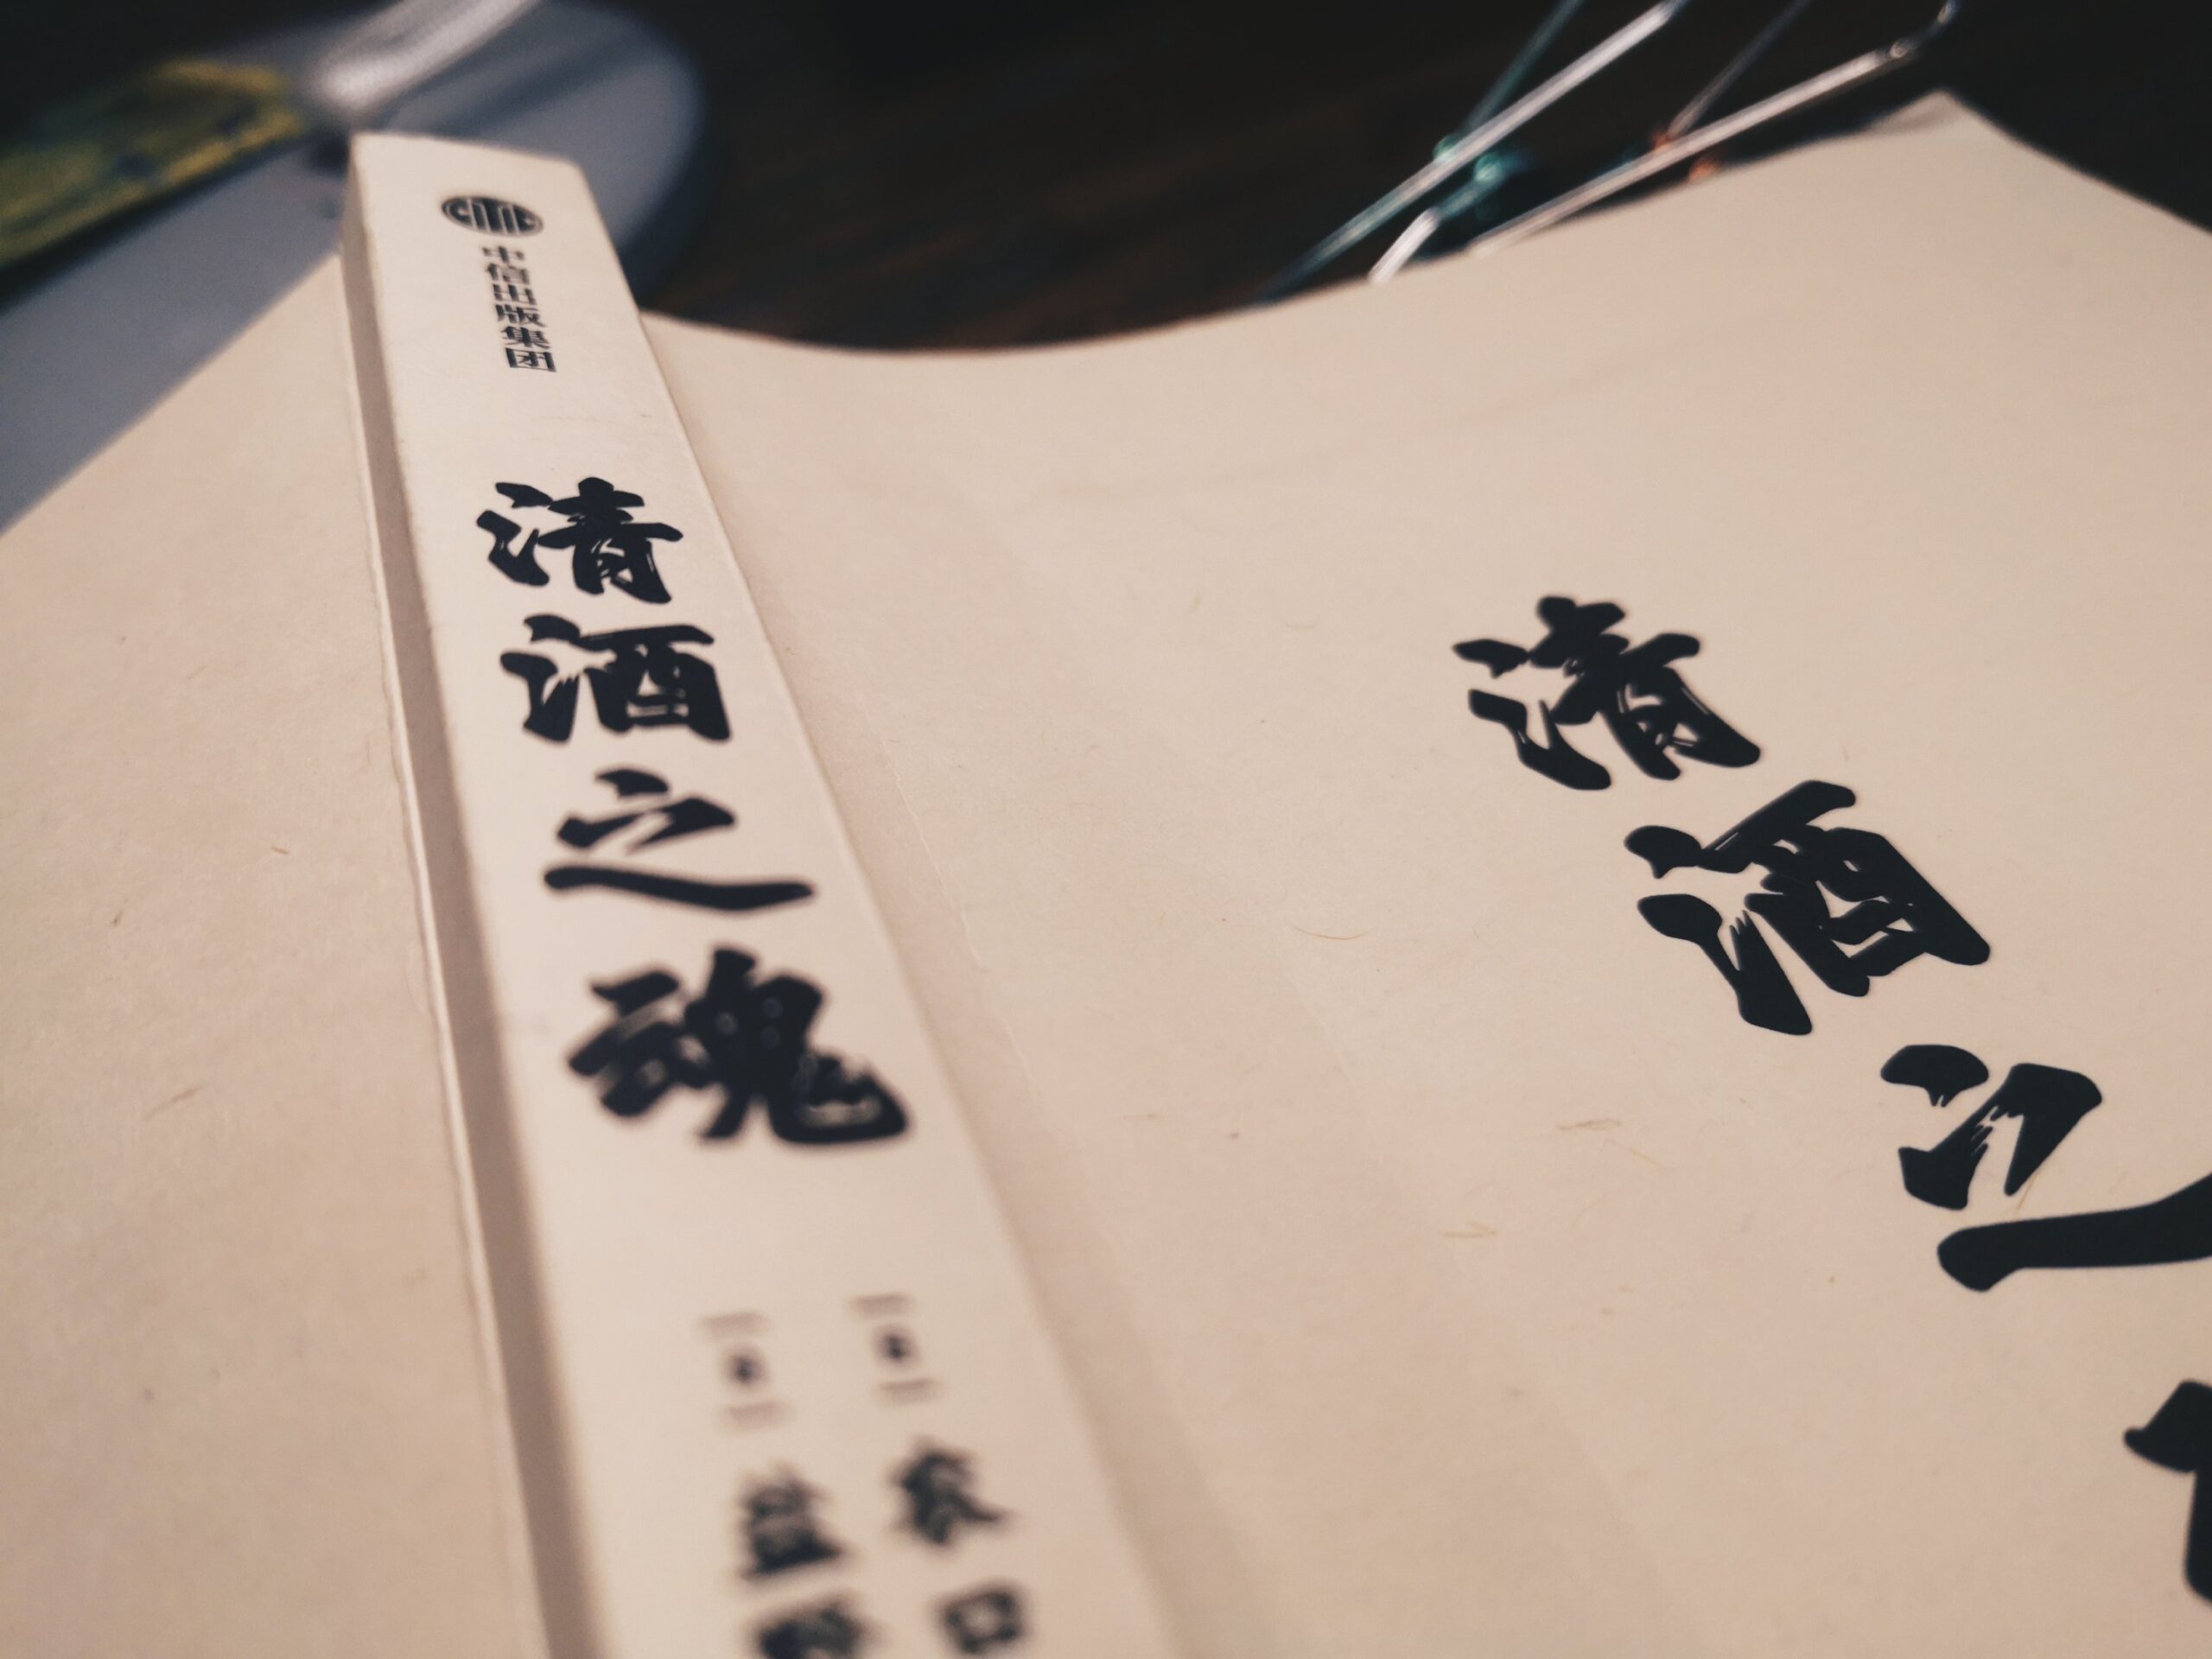 CITIC
中信出版集团
清酒之魂
农口
清酒之